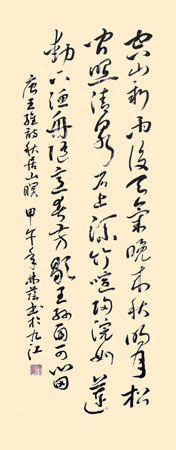 空山新雨後天氣晚來秋明月松
間照清泉石上流竹喧歸浣女蓮
動下漁舟隨意春芳歇王孫自可留
唐王維詩秋居山暝 甲午年 書於九江